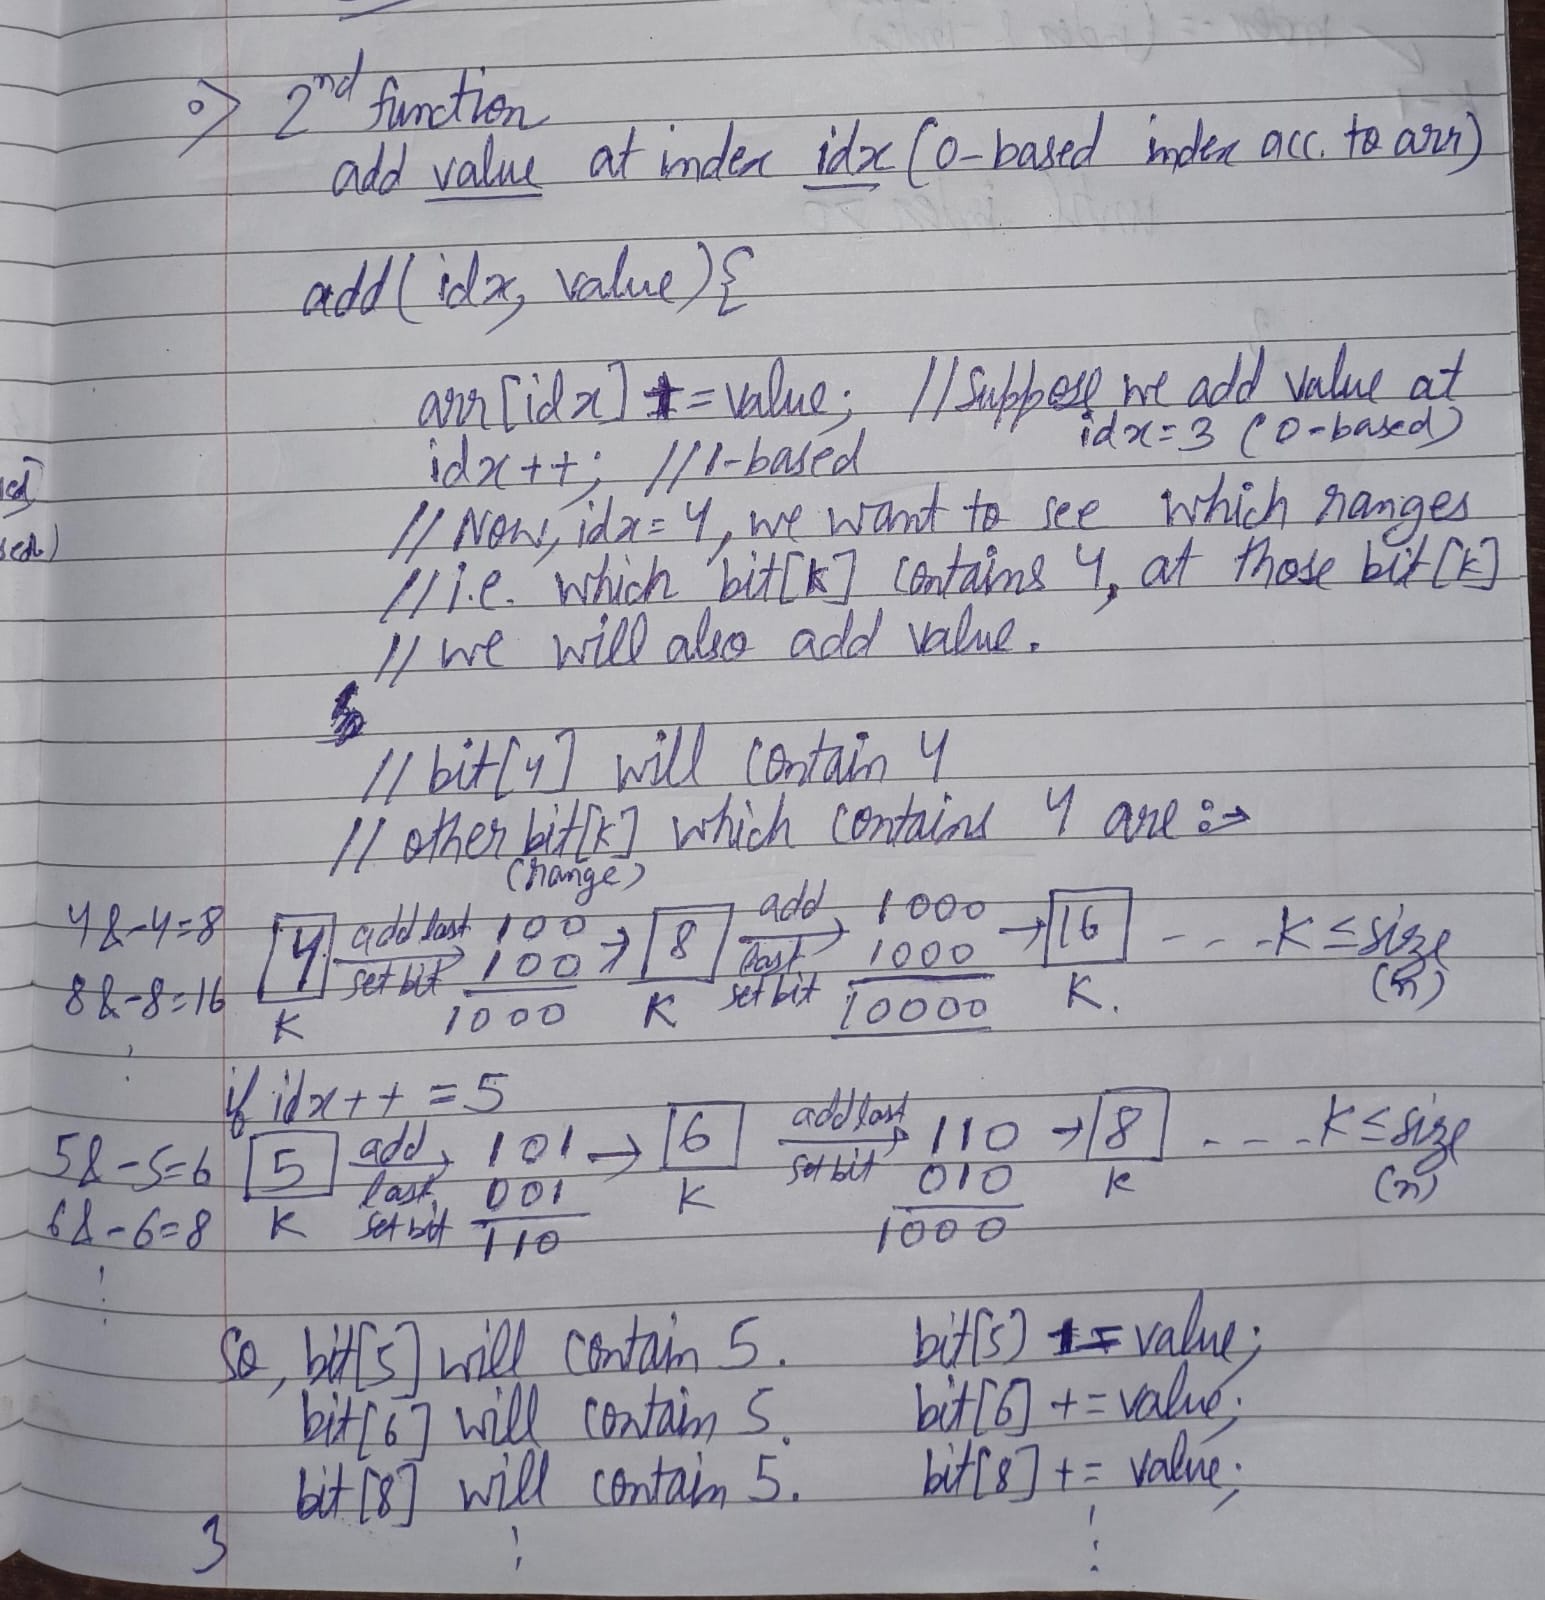 2nd function
add value at index idx (0-based index acc. to arr)
add(idx, value){
arr[idx] += value; // Suppose we add value at
idx=3 (0-based)
idx++; // 1-based
// Now, idx=4, we want to see which ranges
// i.e. which bit[k] contains 4, at those bit[k]
// we will also add value.
// bit[4] will contain 4
// other bit[k] which contains 4 are :→
(range)
4&-4=8 4 add last set bit → 100 100 1000 → 8 add last set bit → 1000 1000 10000 → 16 - - - -K ≤ size
8&-8=16 K K K. (n)
if idx++ = 5
5&-5=6 5 add last set bit → 101 001 110 → 6 add last set bit → 110 010 1000 → 8 - - - -K ≤ size
6&-6=8 K K K (n)
So, bit[5] will contain 5. bit[5] += value;
bit[6] will contain 5. bit[6] += value;
bit[8] will contain 5. bit[8] += value;
}